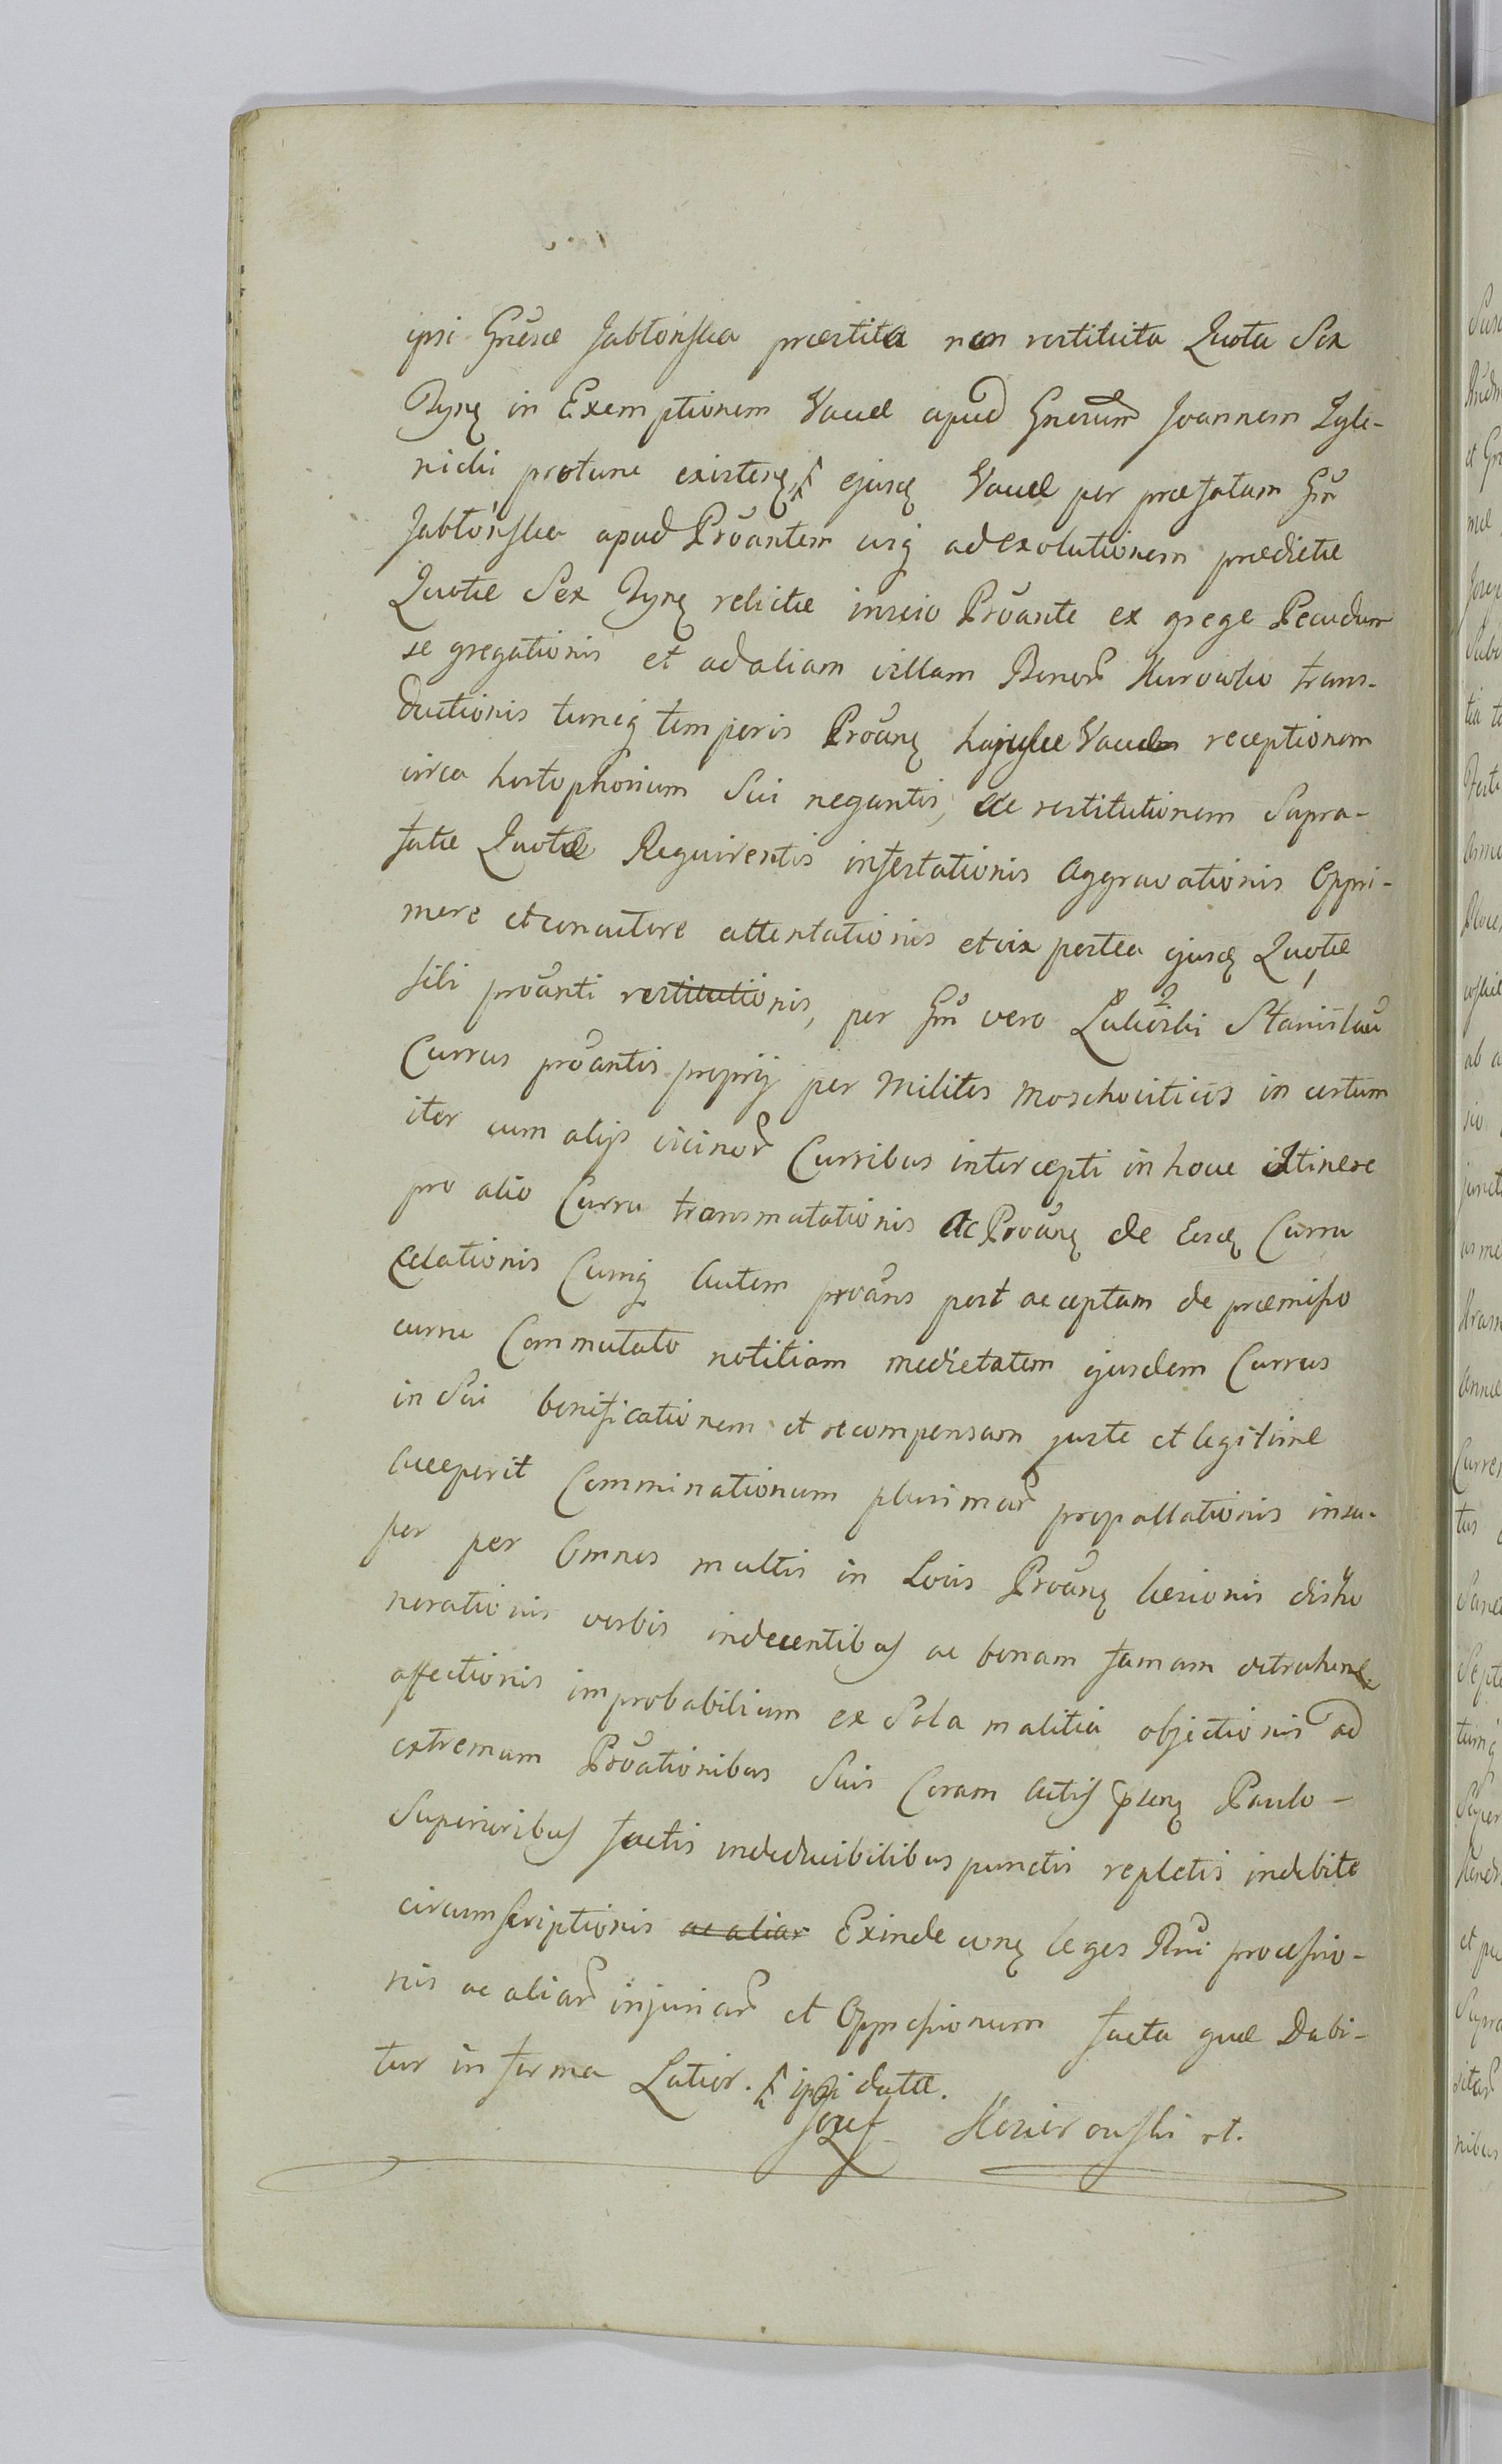 ipsi Gnesæ Jabłońska præstita non restituta Quota Sex
Tynę in Exemptionem Vaccæ apud Gnerum Joannem Zyli-
nicki protunc existenę ejusdę Vaccæ per præfatam Gm
Jabłońska apud Proantem usq ad exolutionem prædictæ
Quotæ Sex Tynę relictæ inscio Proante ex grege Pecudum
se gregationis et ad aliam villam Bonor Kurowko trans-
ductionis tuncq temporis Proanę hujusce Vaccæ receptionem
circa hortophorium Sui negantis, ac restitutionem Supra-
fatæ Quotæ Requirentis infestationis Aggravationis Oppri-
mere et concutere attentationis et vix postea ejusdę Quotæ
sibi proanti restitutionis, per Gm vero Stanislau
Currus proantis proprij per Milites Moschoviticos in certum
iter cum alijs vicinor Curribus intercepti in hocce Itinere
pro alio Curru transmutationis ac Proanę de Eodę Curru
Celationis Cumq Autem proans post acceptam de præmisso
curru Commutato notitiam medietatem ejusdem Currus
in Sui bonificationem et recompensam juste et legitime
Acceperit Comminationum plurimar propallationis insu-
per per Omnes multis in Locis Proanę læsionis disho
norationis verbis indecentibus ac bonam famam detrahenę
affectionis improbabilium ex Sola malitia objectionis ad
extremum Proationibus Suis Coram Actis psenę Paulo-
Superioribus factis indeducibilibus punctis repletis indebite
circumscriptionis ac aliar Exinde conę leges Rni processio-
nis ac aliar injuriar et Oppressionum facta quæ Dabi-
tur in forma Latior. ipsi datæ.
Jozef rt.